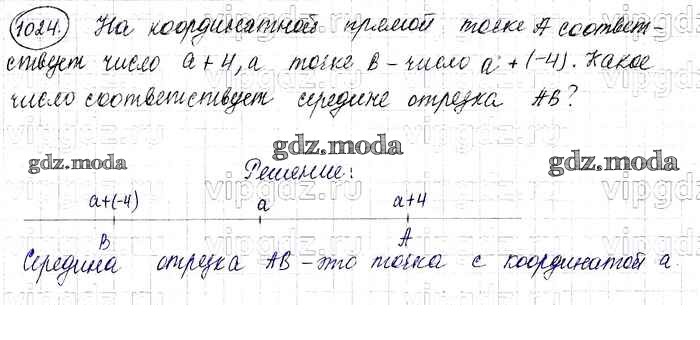 1024. На координатной прямой точке А соответ-
ствует число a+4, а точке В - число a+(-4). Какое
число соответствует середине отрезка АВ?
gdz.moda gdz.moda gdz.moda
Решение:
a+(-4) a a+4
В А
Середина отрезка АВ - это точка с координатой а.